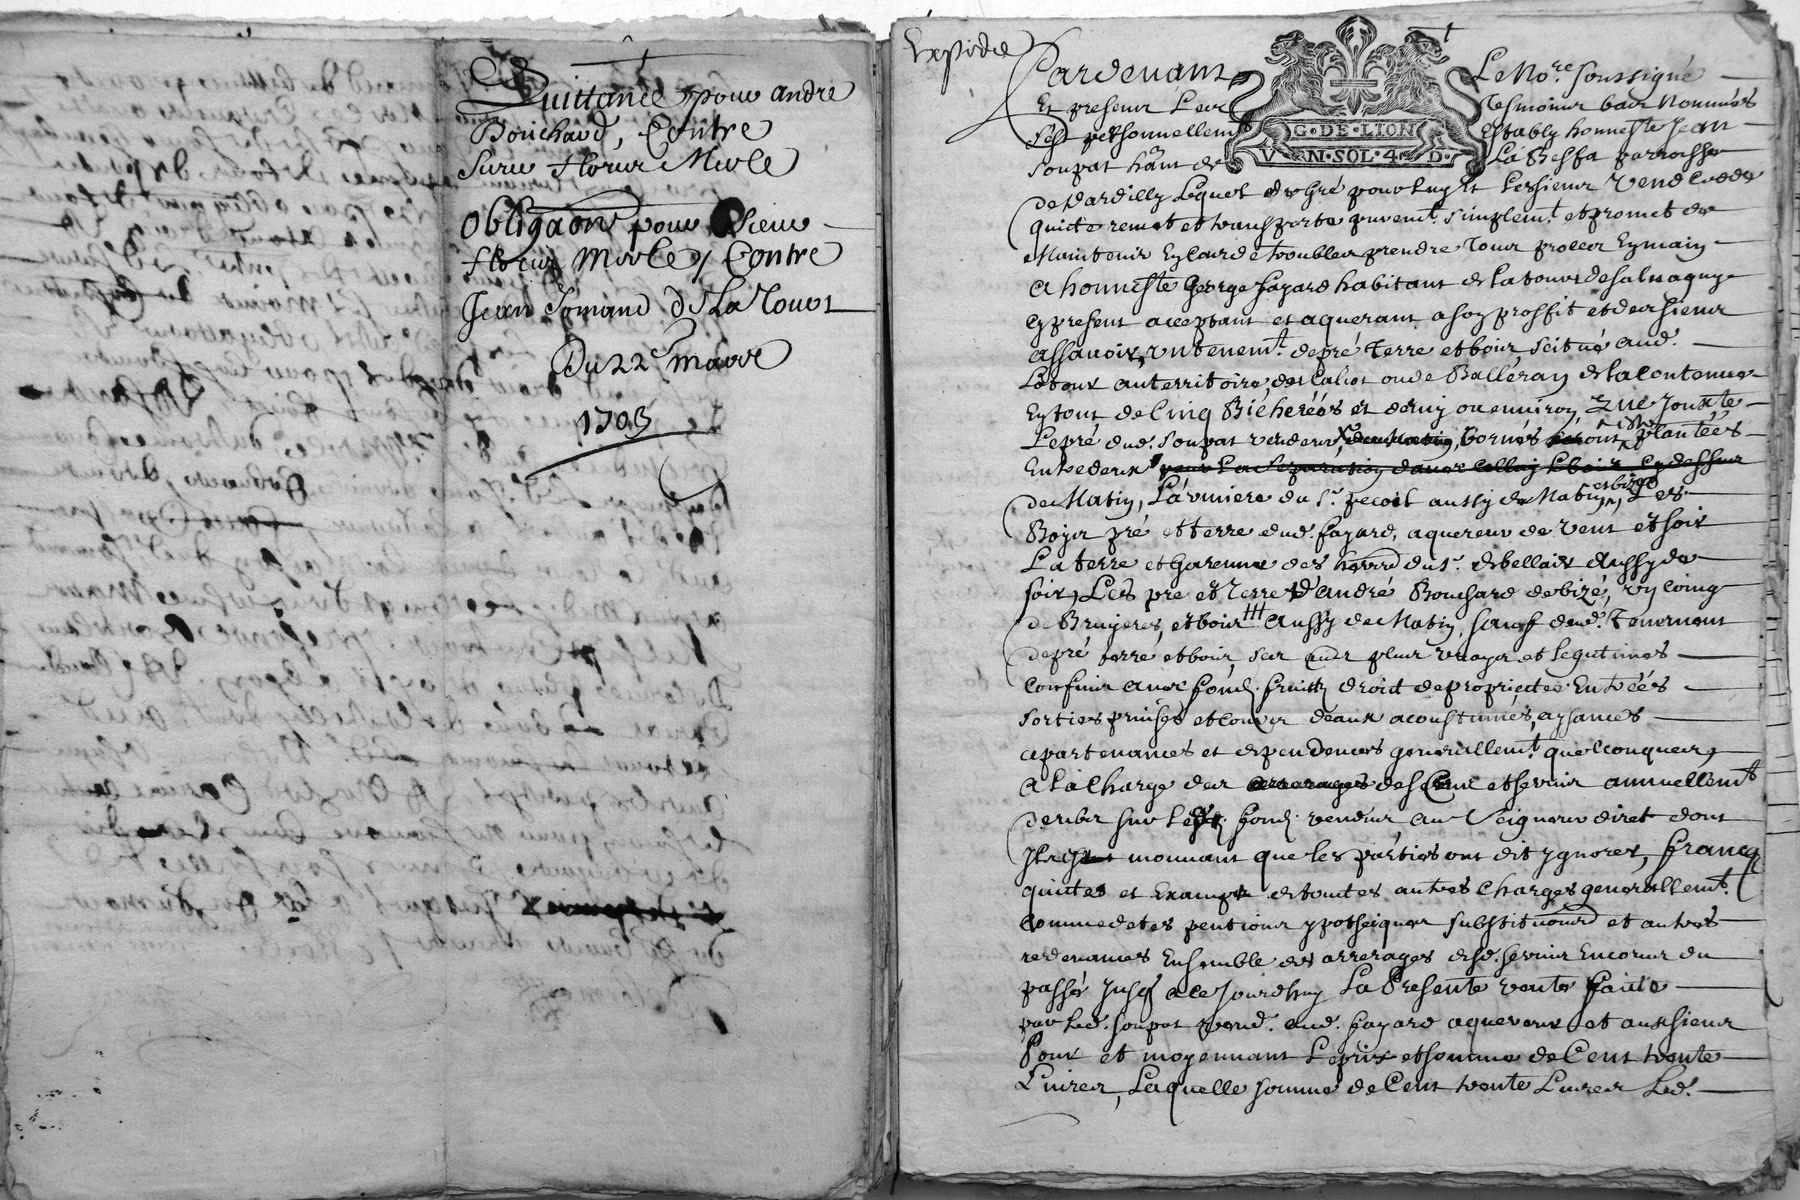 Quittance pour andré
Bouchard, Contre
Sieur Fleury Merle
Obligaõn pour Sieur
fleury Merle / Contre
Jean Tomand de La Tour
Du 22e mars
1703
Expedié
Pardevant Le Nore soussigné
Et presens Les tesmoins bas Nommés
s'est personnellemt estably honneste Jean
Soupat hãnt de La Bessa parroisse
G·DE·LION
VN·SOL·4·D·
de dardilly Lequel de gré pour luy Et Les siens vend Cedde
quicte remet et transporte puremt simplemt et promet de
Maintenir Eygarde troubles prendre
A honneste George fayard habitant de la tour de salvagny
cy present acceptant et aquerant a son proffit et des siens
assavoir, un tenemt de pré Terre et bois, scitué aud.
Letour au territoire de ou de Balleray de la contenue
En tout de Cinq Bicherées et demy ou environ, que Jouxte
Le pré dud. Soupat vendeur, bornes plantées
Entredeux pour la separation
de Matin, La du sr. pecoil aussy de Matin, et bize Les
Bois pré et terre dud. fayard, aquereur de vent et soir
La terre et Garenne des du sr. de bellair Aussy de
soir, Les pré et terre d'andré Bouchard de bizé, un Coing
de Bruyeres, et bois Aussy de Matin, sauf dud. Tenement
de pré terre et bois, ses plus vrayes et legitimes
Confins avec fonds fruits droit de proprietes Entrées
sorties prinses et Cours deaux acoustumés, aysances
apartenances et dependences generallemt quelconques,
A La Charge des Cens et servis annuellemt
deubs sur Led. fonds vendus au Seigneur diret dont
mouvant que les parties ont dit ygnorer, francq
quictes et Exampt de toutes autres Charges generallemt.
Comme detes pentions ypotheiques substitutions et autres
redevances Ensemble des arrerages desd. servis Encourus du
passé jusq a ce Jourdhuy La Presente vente faite
par Led. Soupat vend. aud. fayard aquereur et aux siens
Pour et moyennant Le prix et somme de Cent trente
Livres, Laquelle somme de Cent trente Livres Led.